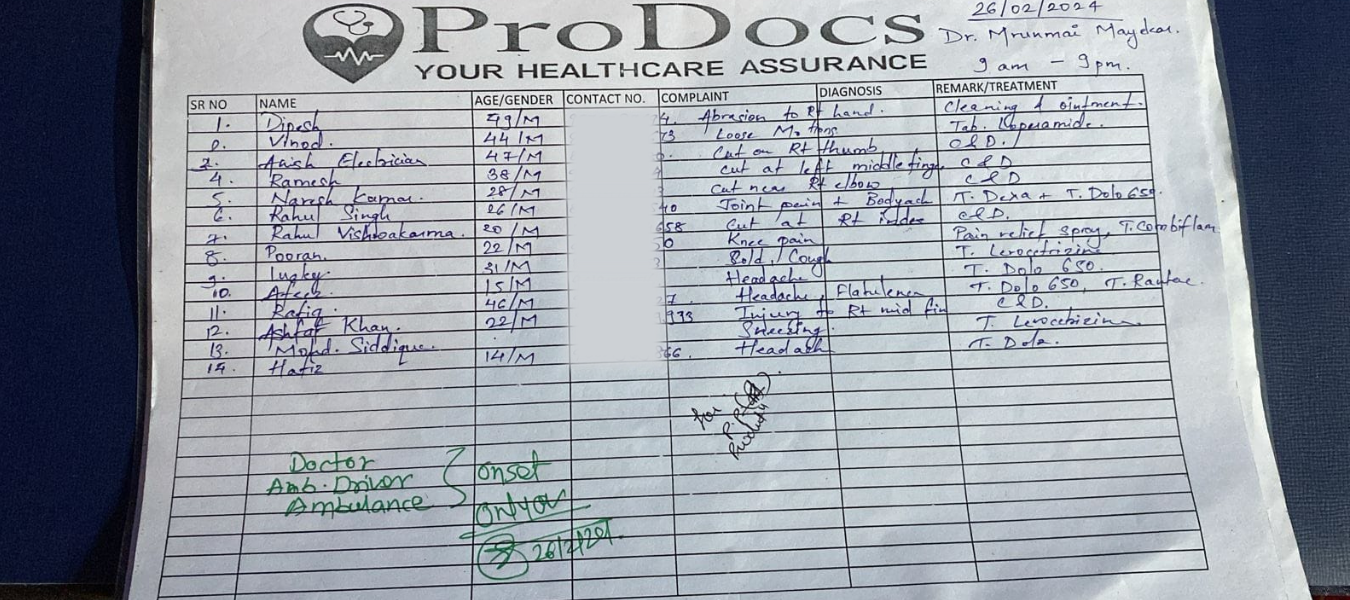 26/02/2024
ProDocs
Dr. Mrunmai Maydeo.
YOUR HEALTHCARE ASSURANCE
9 am - 9 pm.
SR NO NAME AGE/GENDER CONTACT NO. COMPLAINT DIAGNOSIS REMARK/TREATMENT
1. Dipesh 49/M 4. Abrasion to Rt hand. Cleaning & ointment.
2. Vinod. 44/M 73 Loose Motions Tab. Loperamide.
3. Electrician 47/M Cut on Rt thumb C&D.
4. Ramesh 38/M cut at left middle fing. C&D
5. Naresh Kumar. 28/M cut near Rt elbow C&D
6. Rahul Singh 26/M 40 Joint pain + Bodyach T. Dexa + T. Dolo 650.
7. Rahul Vishwakarma. 20/M 658 Cut at Rt index C&D.
8. Pooran. 22/M 0 Knee pain Pain relief spray, T. Combiflam
9. 31/M Cold / Cough T. Levocetrizine
10. 15/M Headache T. Dolo 650.
11. Rafiq 46/M 7. Headache, Flatulence T. Dolo 650, T. Rantac.
12. Ashfaf Khan. 22/M 1933 Injury to Rt mid fin C&D.
13. Mohd. Siddique. Sneezing. T. Levocetrizin
14. Hafiz 14/M 66. Headach T. Dolo.
for
Doctor
Amb. Driver
Ambulance
onset
only
26/2/2024.